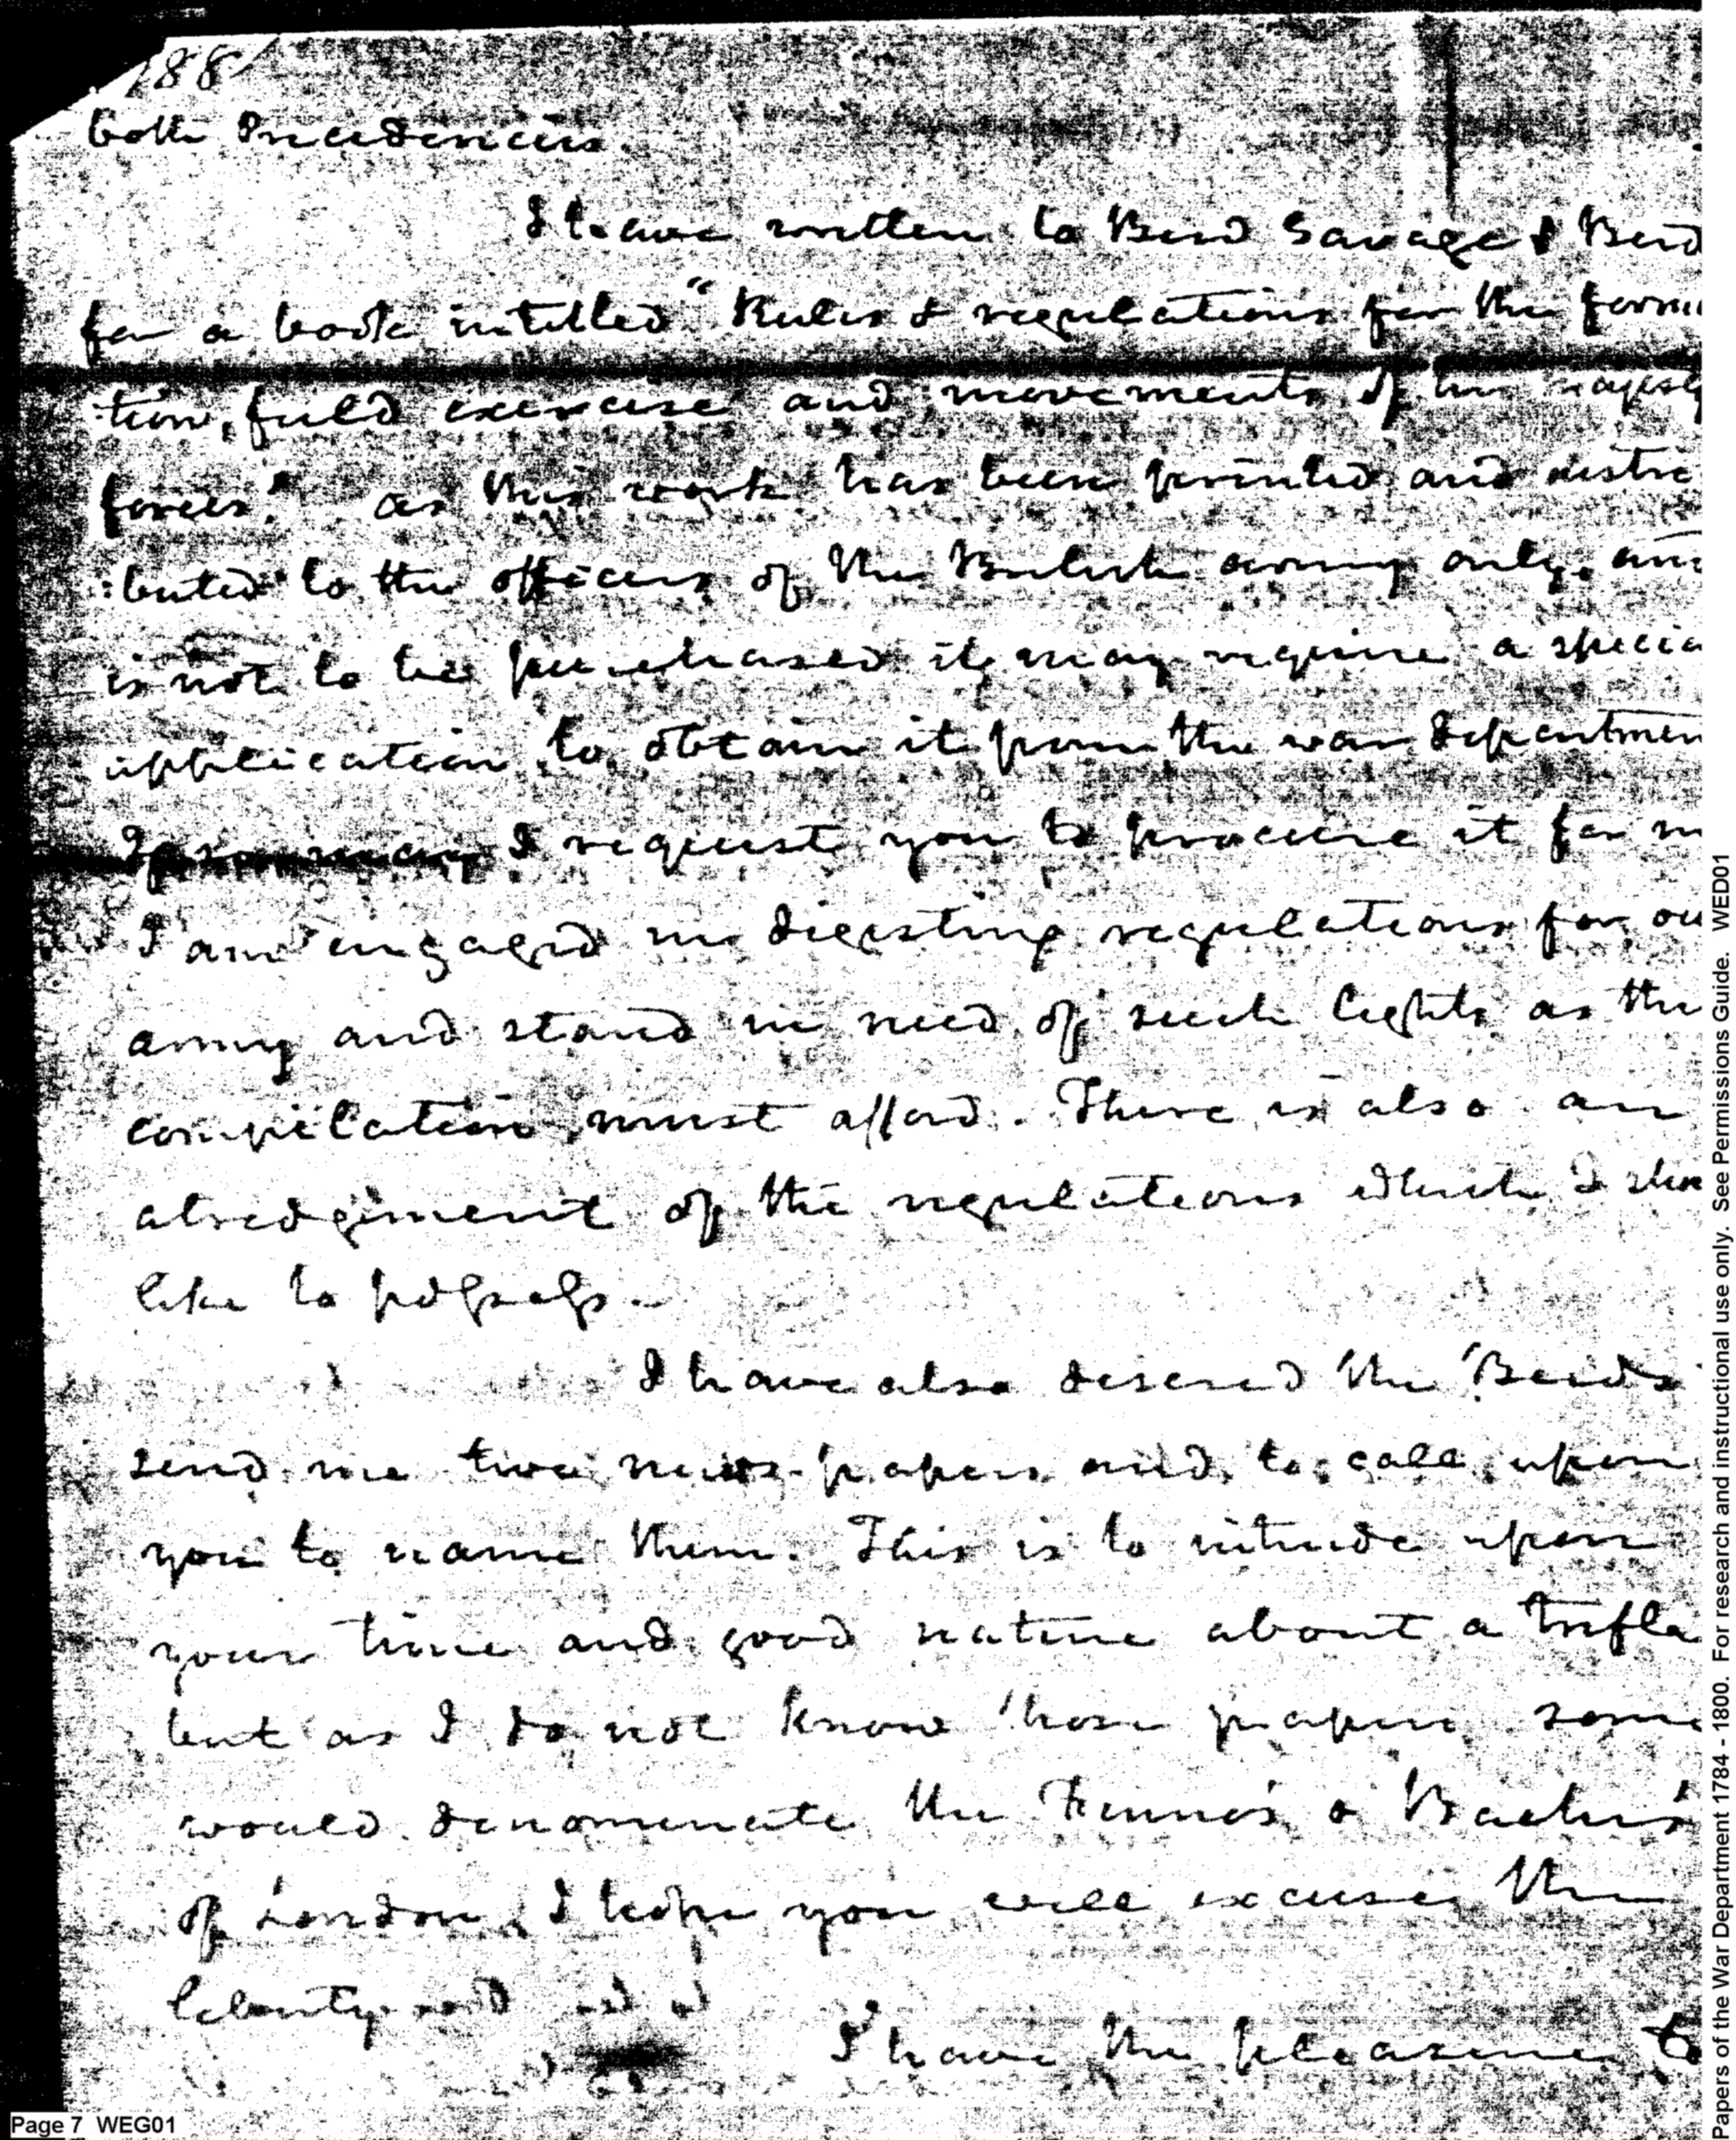 188
both Precedencies.
I have written to Bird Savage & Bird
for a book intitled "Rules & regulations for the forma
:tion, field exercise and movements of his majesty
forces." as this work has been printed and distri
:buted to the officers of the British army only, and
is not to be purchased it may require a specia
application to obtain it from the war departmen
I request you to procure it for m
I am engaged in digesting regulations for ou
army and stand in need of such lights as the
compilation must afford. There is also an
abridgement of the regulations which I shou
like to possess.
I have also desired the Birds
send me two news-papers and to call upon
you to name them. This is to intrude upon
your time and good nature about a trifle
but as I do not know those papers some
would denominate the Fenno's & Bache's
of London, I hope you will excuse the
liberty and
I have the pleasure to
Page 7 WEG01
Papers of the War Department 1784 - 1800. For research and instructional use only. See Permissions Guide. WED01